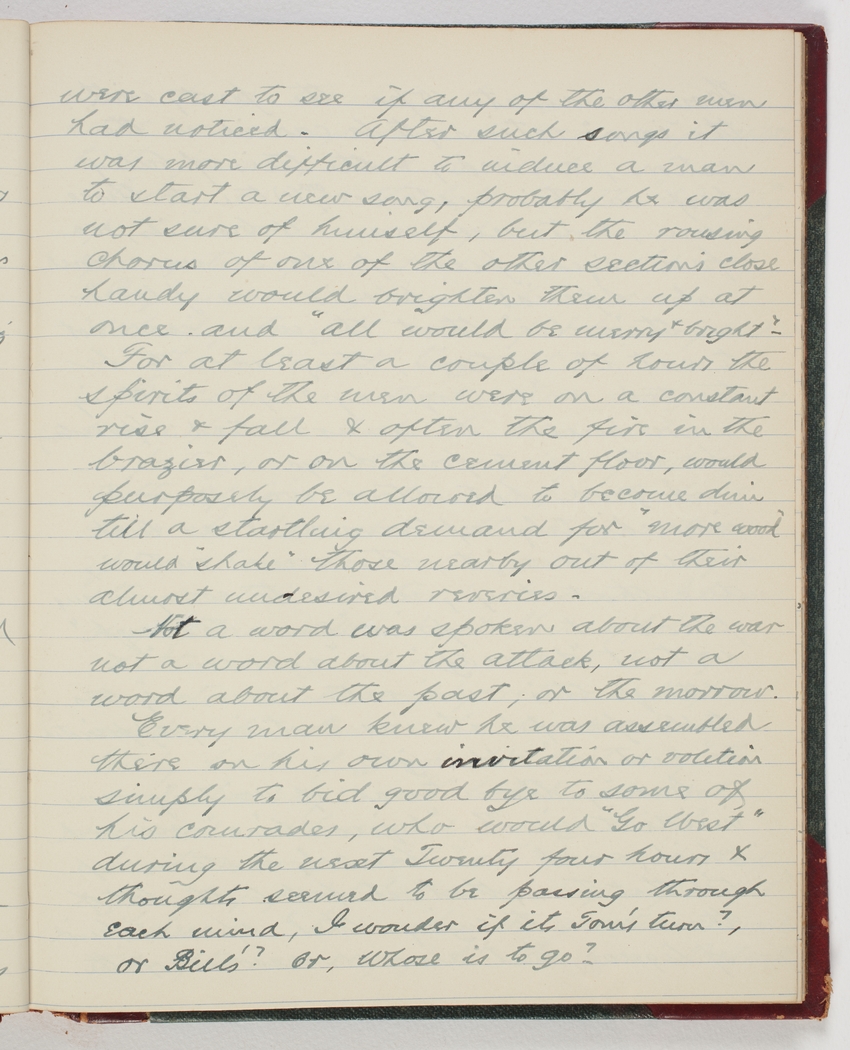 were cast to see if any of the other men
had noticed. After such songs it
was more difficult to induce a man
to start a new song, probably he was
not sure of himself, but the rousing
chorus of one of the other sections close
handy would brighten them up at
once. and "all would be merry & bright".
For at least a couple of hours the
spirits of the men were on a constant
rise & fall & often the fire in the
brazier, or on the cement floor, would
purposely be allowed to become dim
till a startling demand for "more wood"
would "shake" those nearby out of their
almost undesired reveries.
Not a word was spoken about the war
not a word about the attack, not a
word about the past, or the morrow.
Every man knew he was assembled
there on his own invitation or volition
simply to bid good bye to some of
his comrades, who would "Go West"
during the next Twenty four hours &
thoughts seemed to be passing through
each mind, I wonder if its Tom's turn?,
or Bill's? Or, Whose is to go?